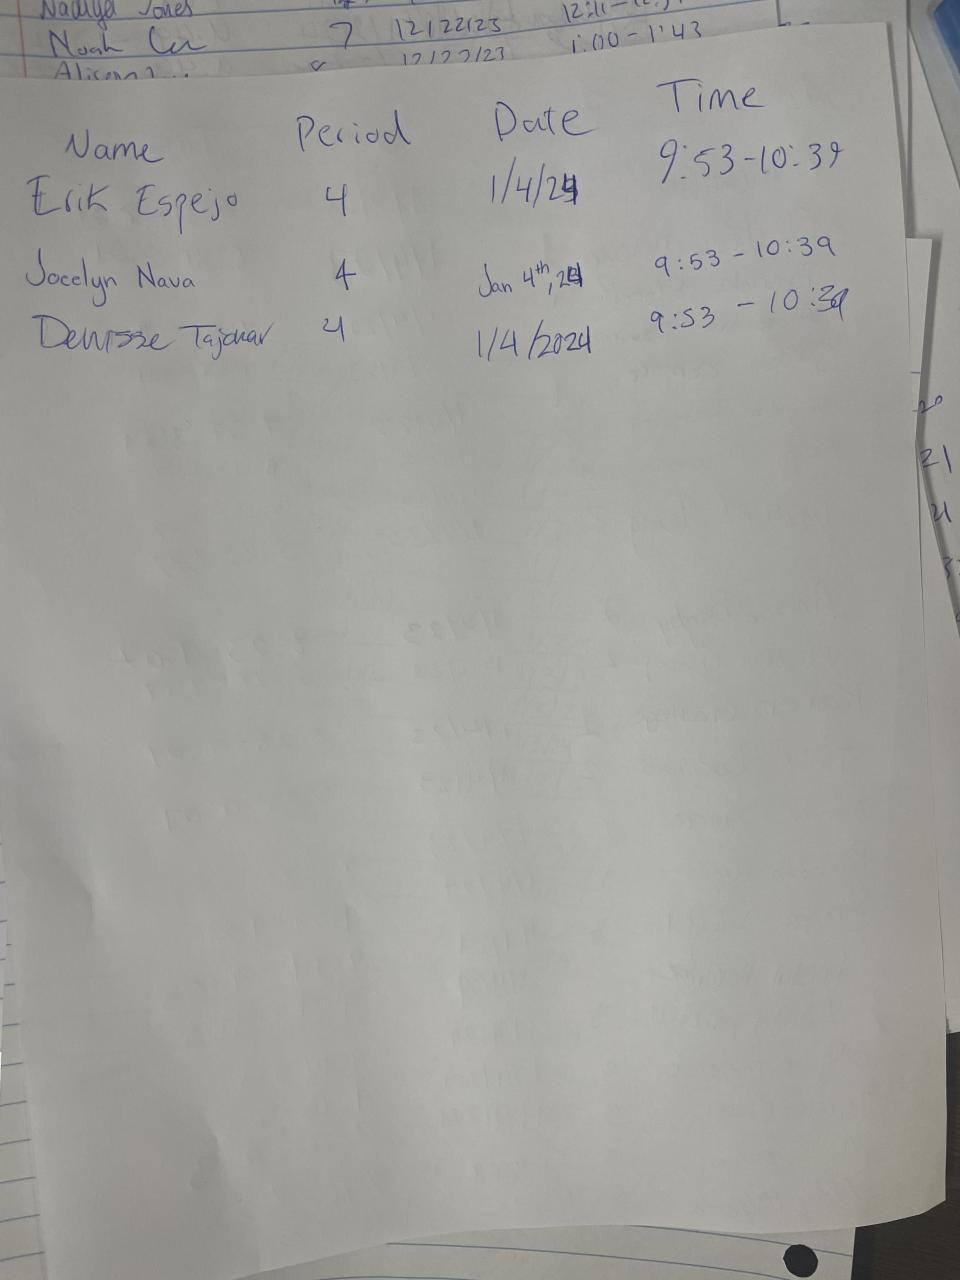 Nadiya Jones
Noah 7 12/22/23 1:00-1:43
12/22/23
Name Period Date Time
Erik Espejo 4 1/4/24 9:53-10:39
Jocelyn Nava 4 Jan 4th, 24 9:53 - 10:39
Denisse Tajonar 4 1/4/2024 9:53 - 10:39
20
21
21